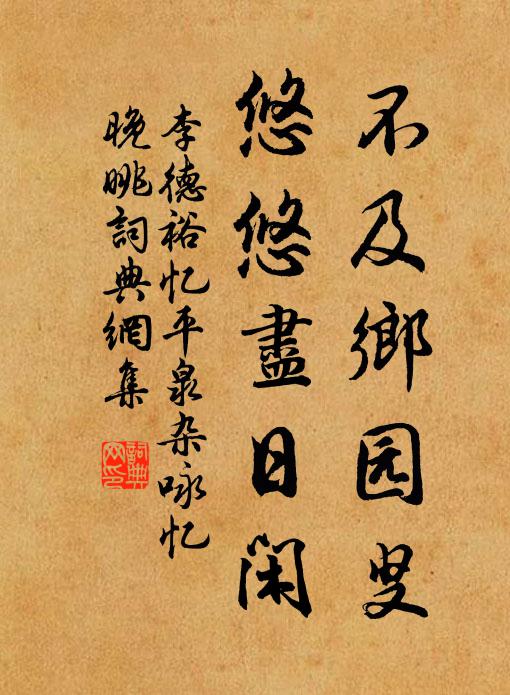 不及鄉园叟
悠悠盡日閑
李德裕忆平泉杂咏忆
晚眺詞典網集
詞典网印